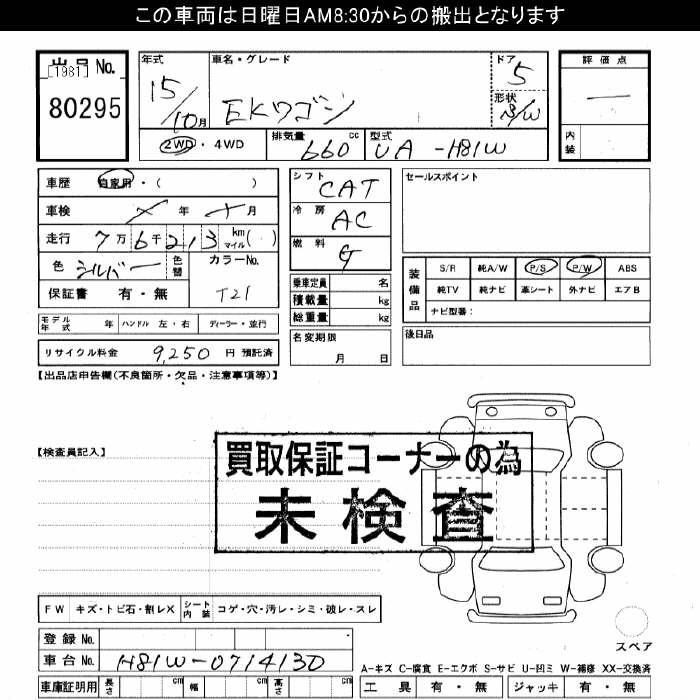 この車両は日曜日AM8:30からの搬出となります
出品No.
[1981]
80295
年式
15/10月
車名・グレード
EKワゴン
ドア
5
形状
S/W
評価点
―
内装
2WD・4WD
排気量 660 cc
型式 UA-H81W
車歴 自家用・( )
車検 年 月
走行 7万6千213 km マイル( )
色 シルバー 色替
カラーNo. T21
保証書 有・無
シフト CAT
冷房 AC
燃料 G
乗車定員 名
積載量 kg
総重量 kg
名変期限 月 日
セールスポイント
装備品
S/R 純A/W P/S P/W ABS
純TV 純ナビ 革シート 外ナビ エアB
ナビ型番:
後日品
モデル年式 年 ハンドル 左・右 ディーラー・並行
リサイクル料金 9,250 円 預託済
【出品店申告欄(不良箇所・欠品・注意事項等)】
【検査員記入】
買取保証コーナーの為
未検査
FW キズ・トビ石・割レX シート内装 コゲ・穴・汚レ・シミ・破レ・スレ
スペア
登録No.
車台No. H81W-0714130
A-キズ C-腐食 E-エクボ S-サビ U-凹ミ W-補修 XX-交換済
車庫証明用 長さ cm 幅 cm 高さ cm
工具 有・無 ジャッキ 有・無